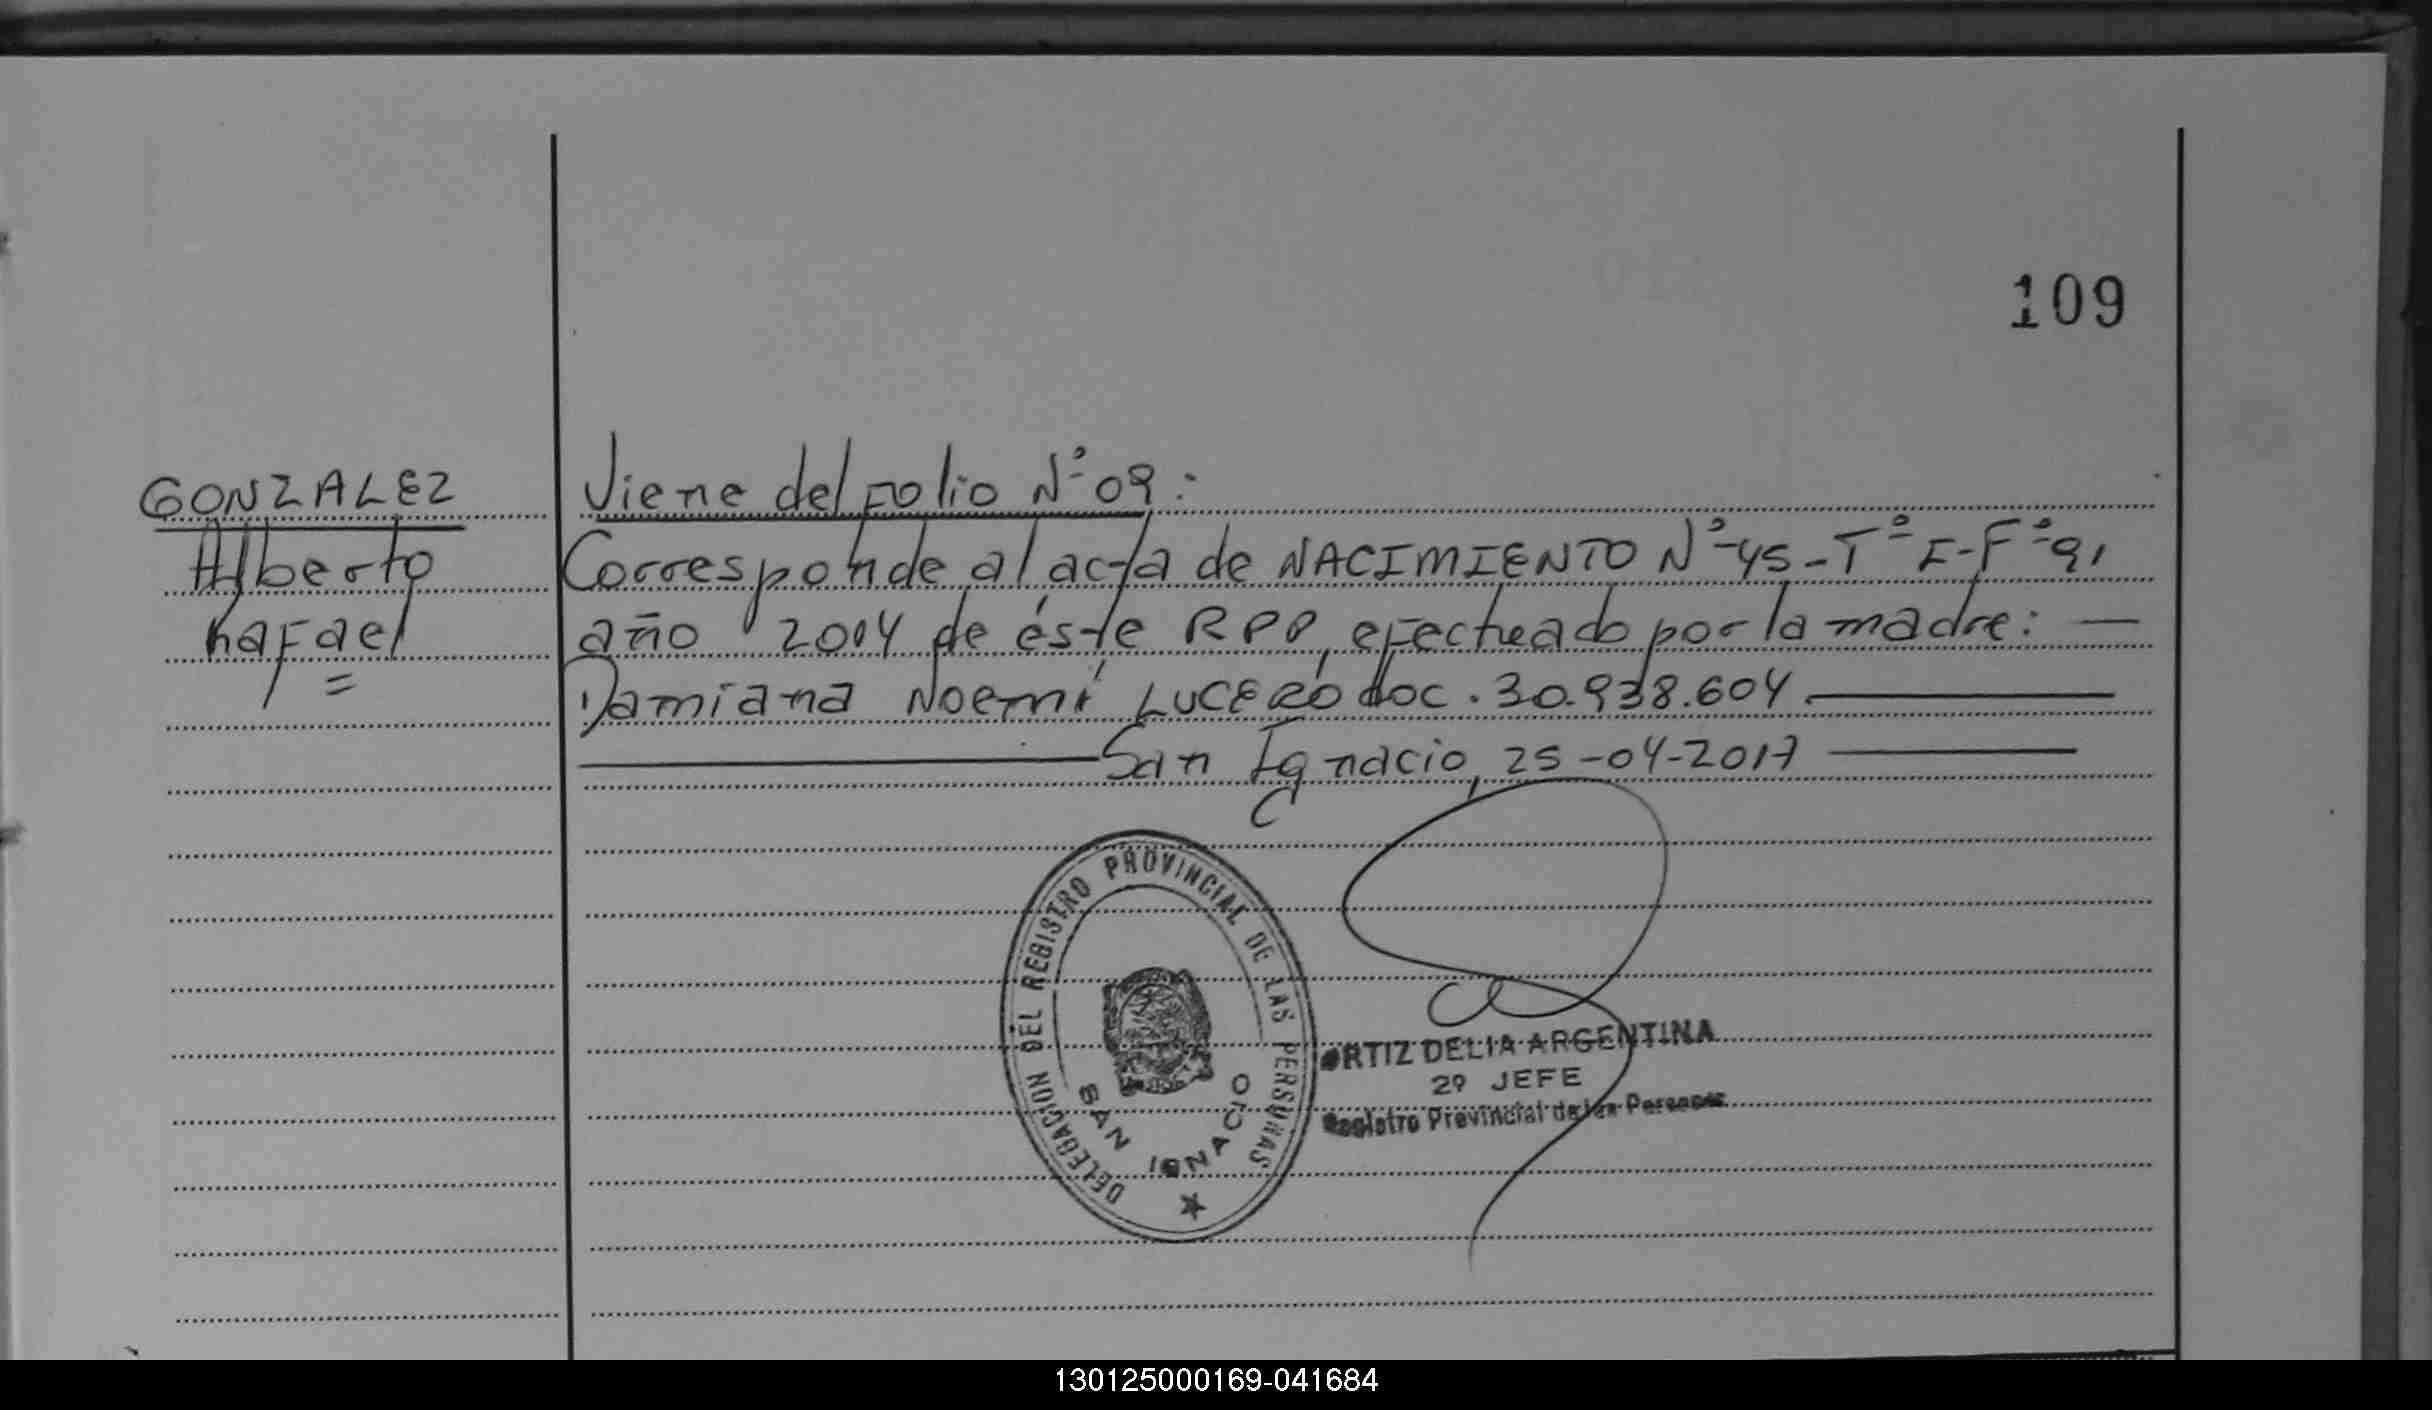 109
GONZALEZ
Alberto
Rafael
=
Viene del Folio N° 09:
Corresponde al acta de NACIMIENTO N° 45 - T° I - F° 91
año 2004 de éste RPP, efectuado por la madre: —
Damiana Noemí LUCERO doc. 30.938.604 —
— San Ignacio, 25-04-2017 —
DELEGACION DEL REGISTRO PROVINCIAL DE LAS PERSONAS
SAN IGNACIO
ORTIZ DELIA ARGENTINA
2º JEFE
Registro Provincial de las Personas
130125000169-041684